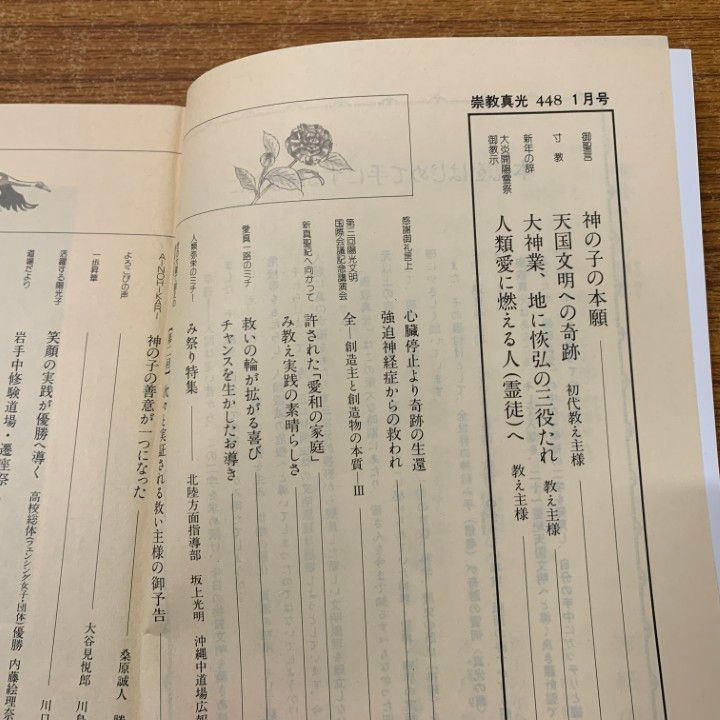 崇教真光 448 1月号
御聖言
神の子の本願
寸教
天国文明への奇跡 初代教え主様
新年の辞
大神業、地に恢弘の三役たれ 教え主様
大炎開陽霊祭
御教示
人類愛に燃える人(霊徒)へ 教え主様
感謝御礼言上
心臓停止より奇跡の生還
強迫神経症からの救われ
第三回陽光文明
国際会議記念講演会
全一創造主と創造物の本質―Ⅲ
新真聖記へ向かって
許された「愛和の家庭」
み教え実践の素晴らしさ
愛真一路のミチ
救いの輪が拡がる喜び
チャンスを生かしたお導き
人類弥栄のミチ―
み祭り特集 北陸方面指導部 坂上光明 沖縄中道場広報
実証される救い主様の御予告
〜AINOHIKARI〜
神の子の善意が一つになった
よろこびの声
桑原誠人
一歩昇華
大谷見悦郎
活躍する陽光子
笑顔の実践が優勝へ導く 高校総体(フェンシング女子・団体)優勝 内藤絵理奈
道場だより
岩手中修験道場・遷座祭